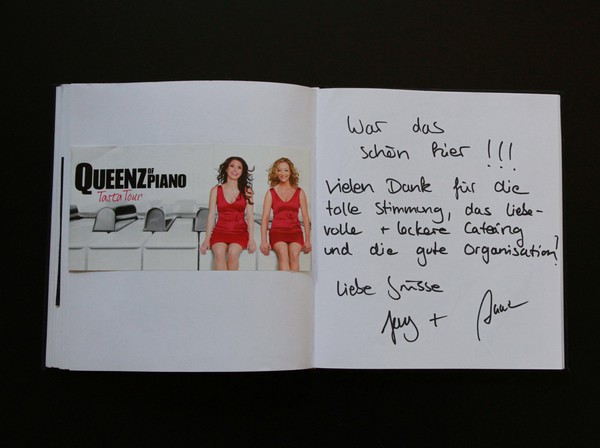 QUEENZ OF PIANO
Tasta Tour
War das
schön hier !!!
Vielen Dank für die
tolle Stimmung, das liebe-
volle + leckere Catering
und die gute Organisation!
Liebe Grüsse
+